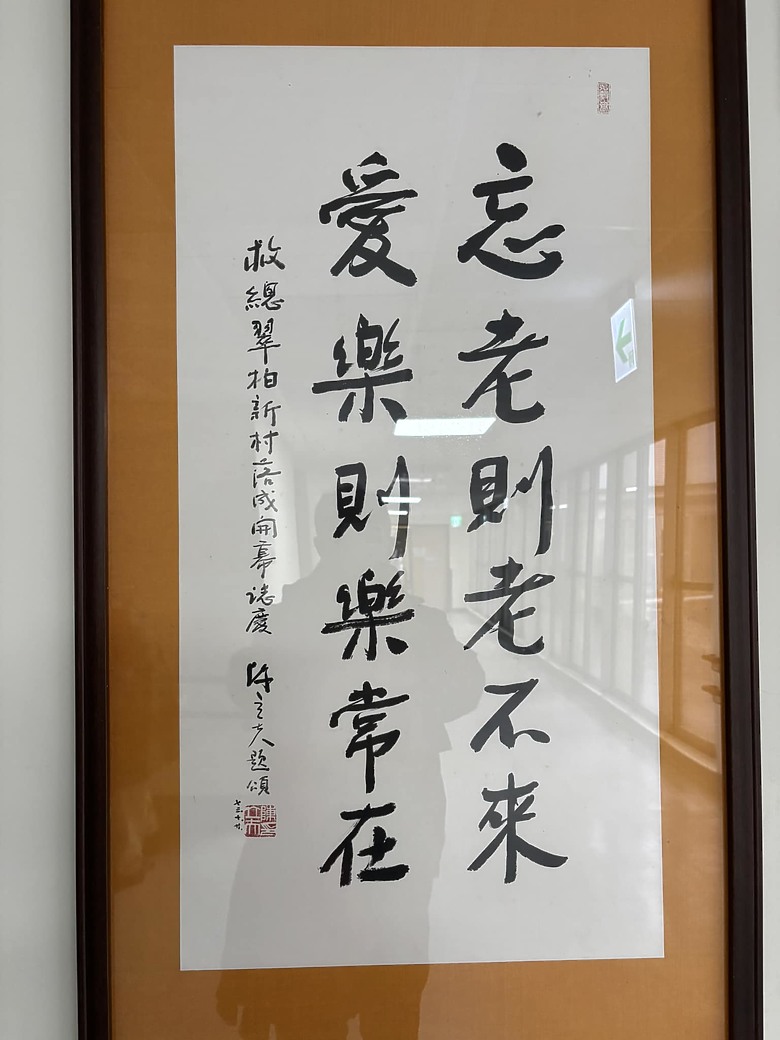 忘老則老不來
愛樂則樂常在
救總翠柏新村落成開幕誌慶
陳立夫題頌